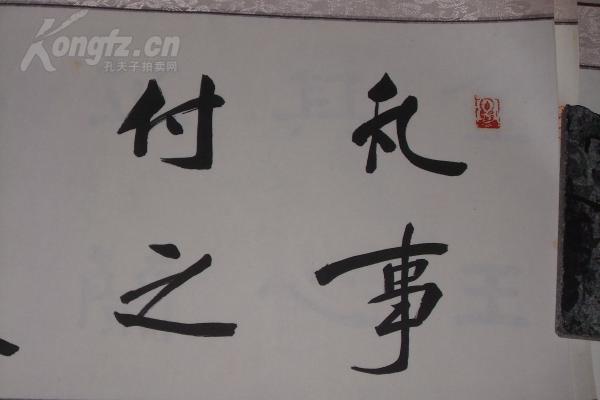 Kongfz.cn
孔夫子拍卖网
凡事
付之